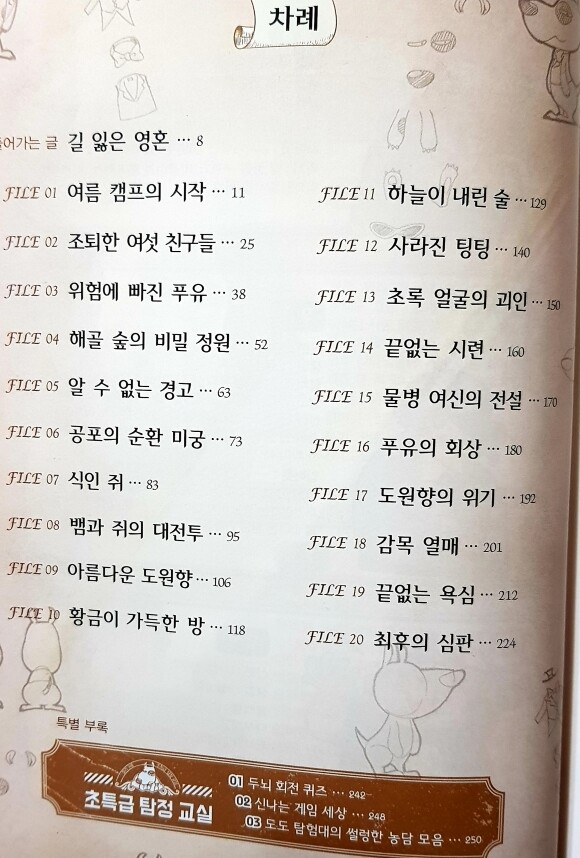 차례
들어가는 글 길 잃은 영혼 … 8
FILE 01 여름 캠프의 시작 … 11
FILE 02 조퇴한 여섯 친구들 … 25
FILE 03 위험에 빠진 푸유 … 38
FILE 04 해골 숲의 비밀 정원 … 52
FILE 05 알 수 없는 경고 … 63
FILE 06 공포의 순환 미궁 … 73
FILE 07 식인 쥐 … 83
FILE 08 뱀과 쥐의 대전투 … 95
FILE 09 아름다운 도원향 … 106
FILE 10 황금이 가득한 방 … 118
FILE 11 하늘이 내린 술 … 129
FILE 12 사라진 팅팅 … 140
FILE 13 초록 얼굴의 괴인 … 150
FILE 14 끝없는 시련 … 160
FILE 15 물병 여신의 전설 … 170
FILE 16 푸유의 회상 … 180
FILE 17 도원향의 위기 … 192
FILE 18 감목 열매 … 201
FILE 19 끝없는 욕심 … 212
FILE 20 최후의 심판 … 224
특별 부록
초특급 탐정 교실
01 두뇌 회전 퀴즈 … 242
02 신나는 게임 세상 … 248
03 도도 탐험대의 썰렁한 농담 모음 … 250